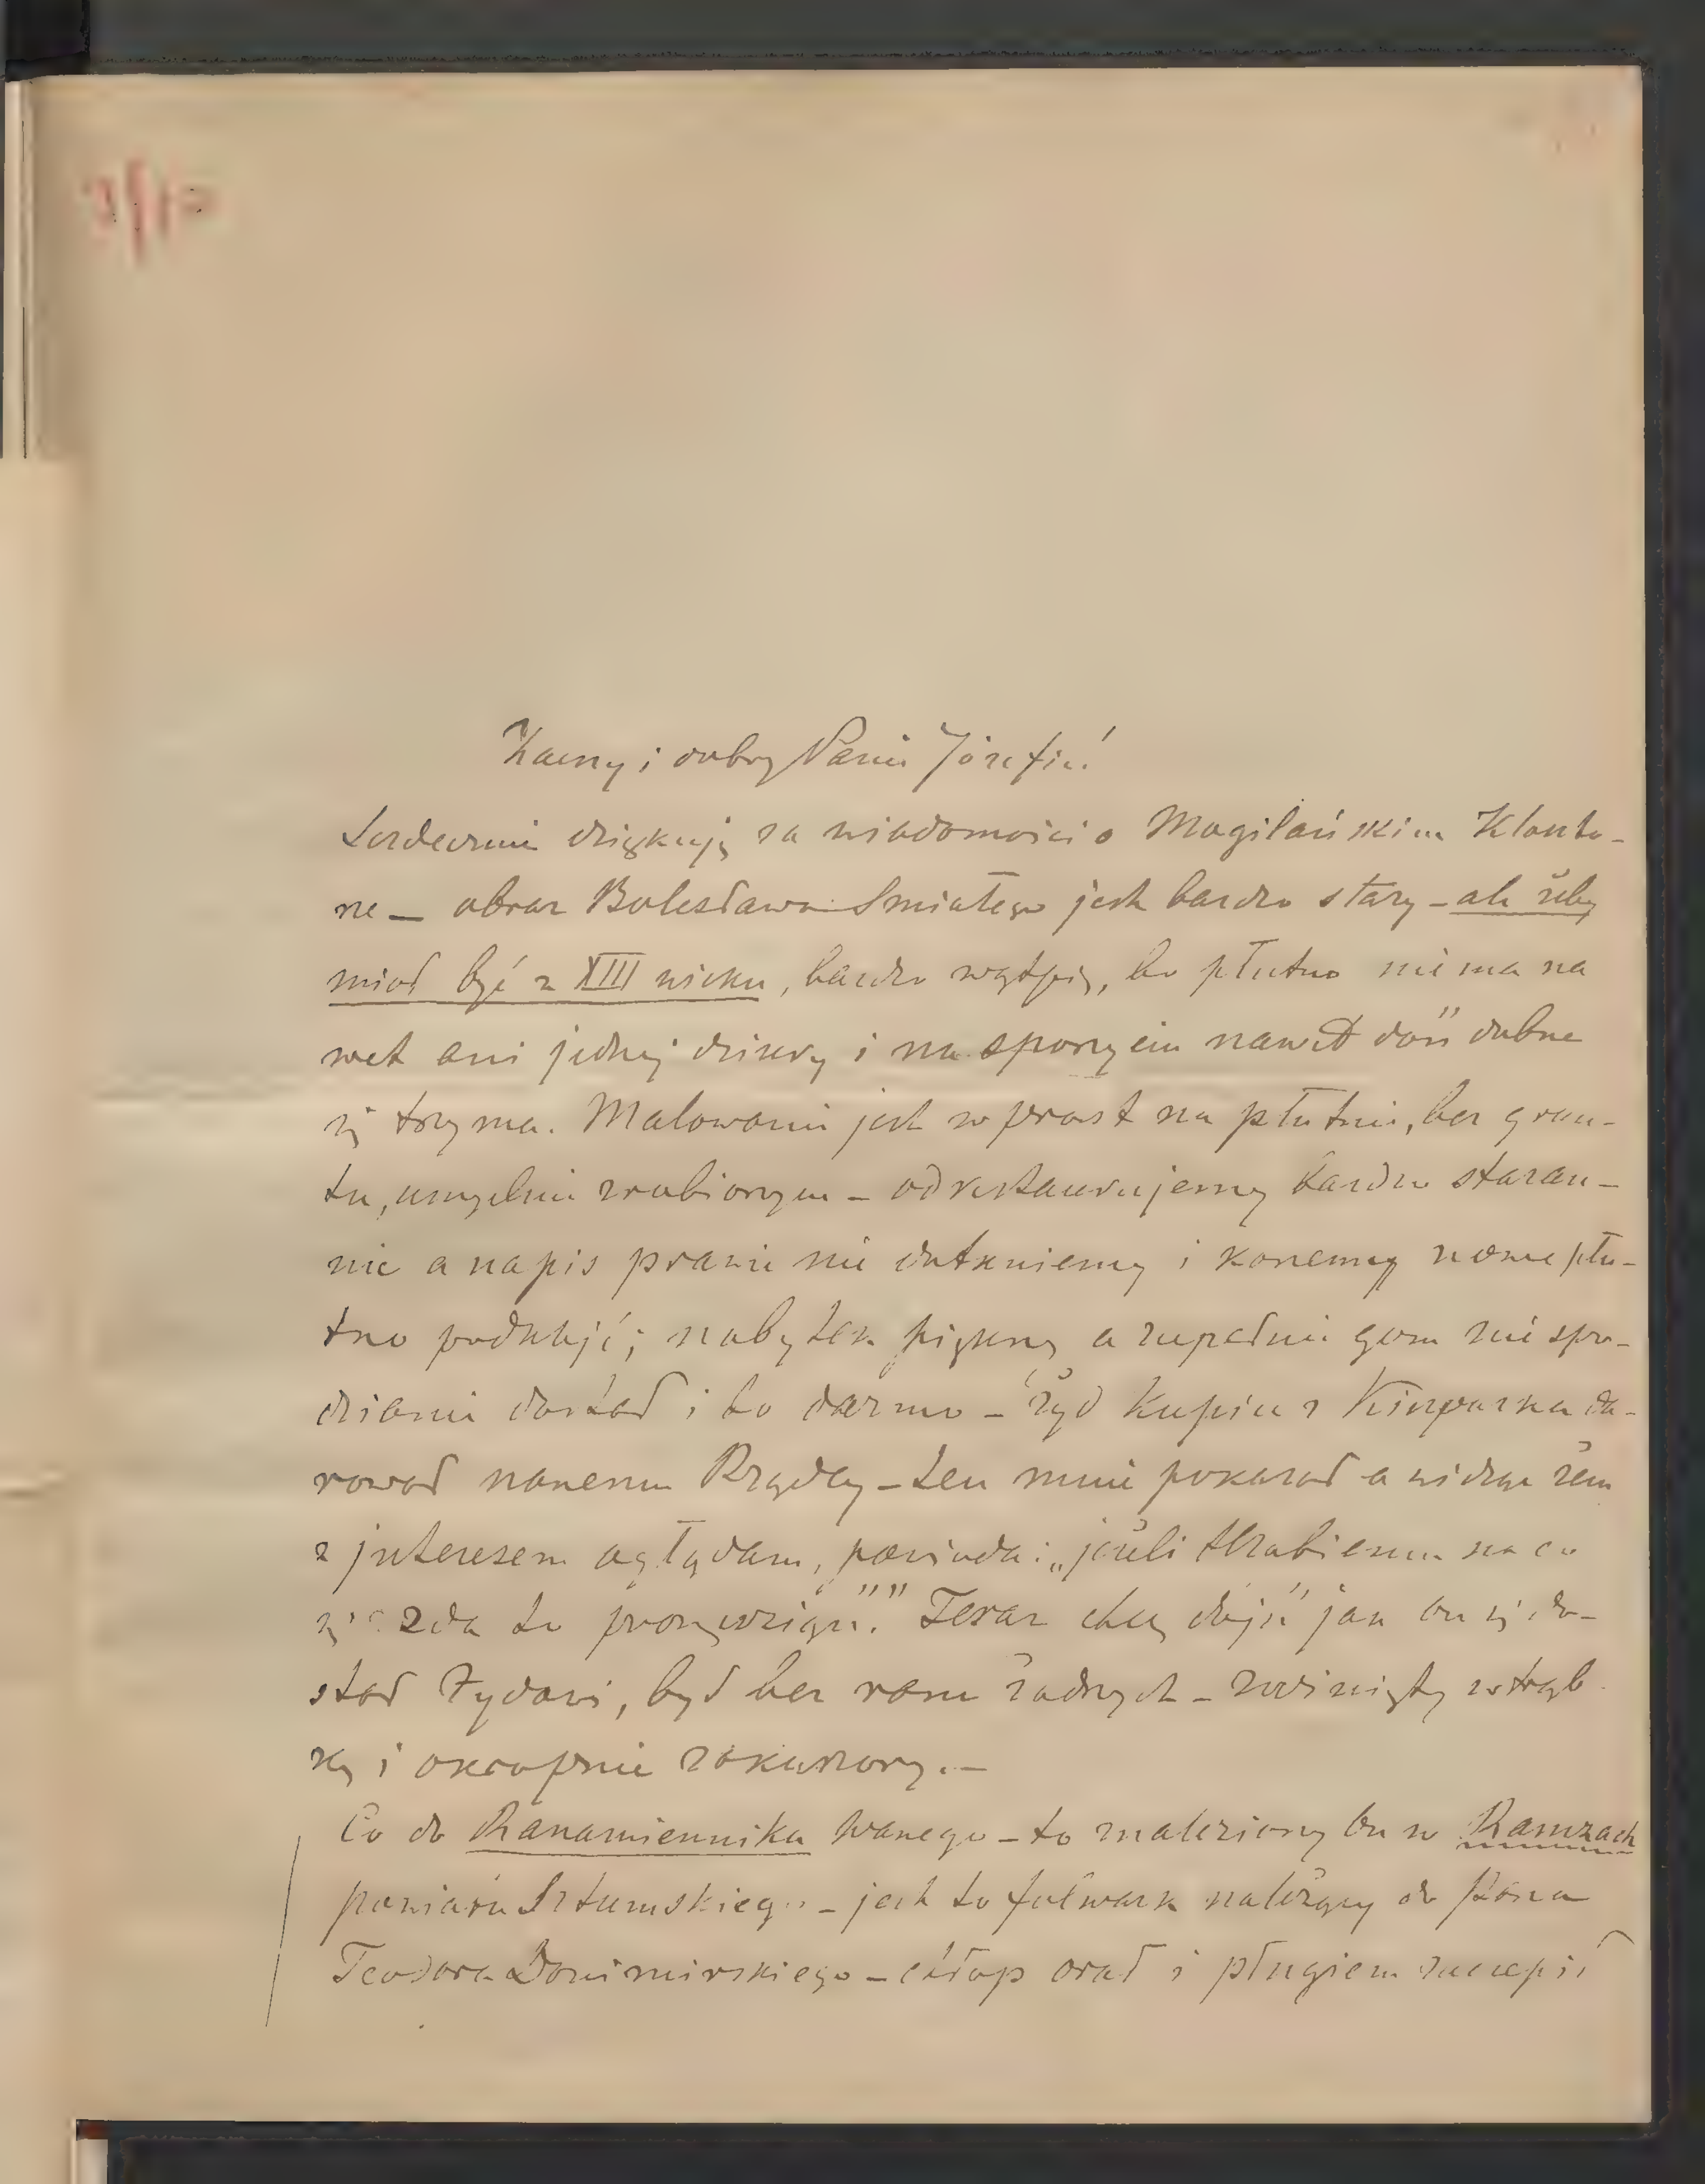 Zacny i dobry Panie Józefie!
Serdecznie dziękuję za wiadomości o Mogilańskim Klaszto-
rze — obraz Bolesława Smiałego jest bardzo stary – ale żeby
miał być z XIII wieku, bardzo wątpię, bo płutno nie ma na
wet ani jednej dziury i na spojrzeniu nawet dość dobrze
się trzyma. Malowanie jest wprost na płutnie, bez grun-
tu, umyślnie zrobionym – odrestaurujemy bardzo staran-
nie a napis prawie nie dotkniemy i każemy nowe płu-
tno podkleić; nabytek piękny a zupełnie gom nie spo-
dzianie dostał i to darmo – żyd kupiec z Kiszparka da-
rował naszemu Rządcy – ten mnie pokazał a widząc żem
z jnteresem oglądam, powiada: „jeżeli Hrabiemu na co
się zda to proszę wziąść." Teraz chcę dojść jak on się do-
stał Żydowi, był bez ram żadnych – zwinięty w trąb-
kę i okropnie zakurzony. –
Co do Kanamiennika Wanego – to znaleziony on w Ramzach
powiatu Sztumskiego – jest to folwark należący do Pana
Teodora Donimirskiego – chłop orał i pługiem zaczepił